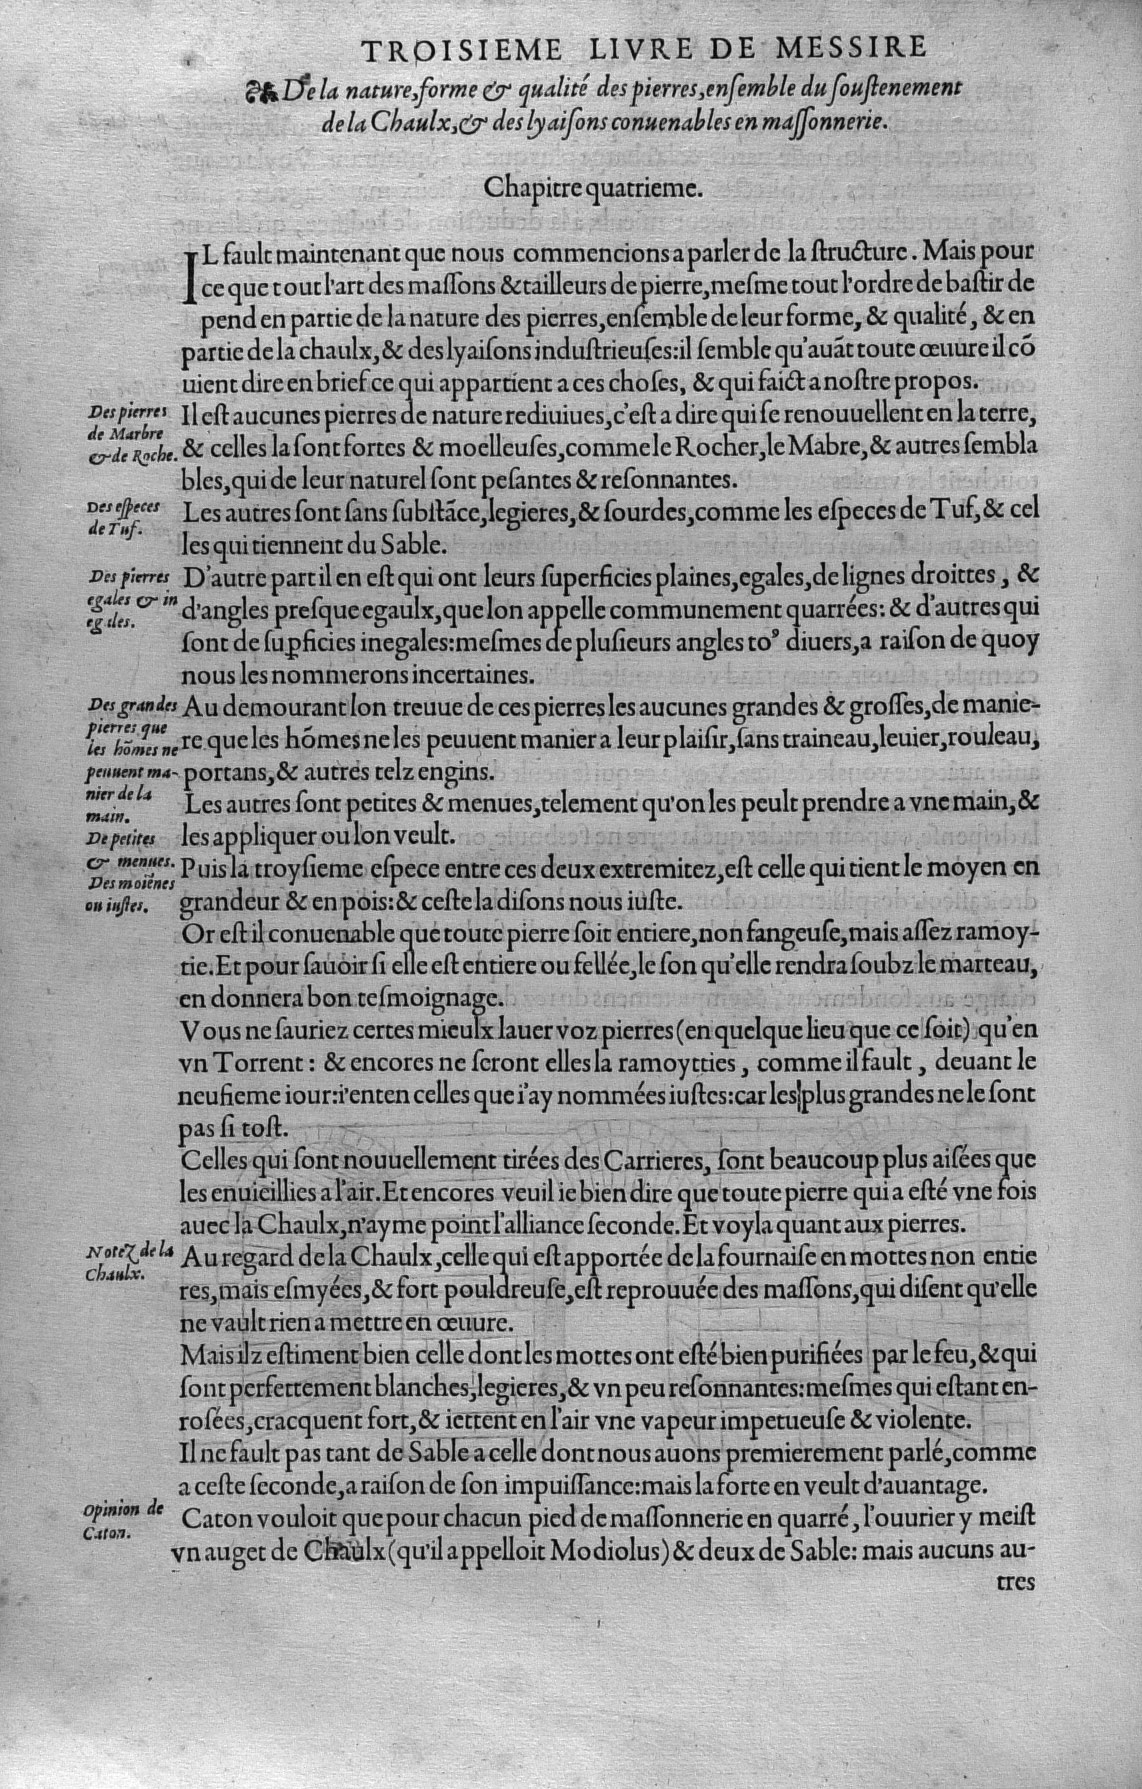 TROISIEME LIVRE DE MESSIRE
De la nature, forme & qualité des pierres, ensemble du soustenement
de la Chaulx, & des lyaisons conuenables en massonnerie.
Chapitre quatrieme.
IL fault maintenant que nous commencions a parler de la structure. Mais pour
ce que tout l'art des massons & tailleurs de pierre, mesme tout l'ordre de bastir de
pend en partie de la nature des pierres, ensemble de leur forme, & qualité, & en
partie de la chaulx, & des lyaisons industrieuses: il semble qu'auãt toute œuure il cõ
uient dire en brief ce qui appartient a ces choses, & qui faict a nostre propos.
Des pierres
de Marbre
& de Roche.
Il est aucunes pierres de nature rediuiues, c'est a dire qui se renouuellent en la terre,
& celles la sont fortes & moelleuses, comme le Rocher, le Mabre, & autres sembla
bles, qui de leur naturel sont pesantes & resonnantes.
Des especes
de Tuf.
Les autres sont sans substãce, legieres, & sourdes, comme les especes de Tuf, & cel
les qui tiennent du Sable.
Des pierres
egales & in
egales.
D'autre part il en est qui ont leurs superficies plaines, egales, de lignes droittes, &
d'angles presque egaulx, que lon appelle communement quarrées: & d'autres qui
sont de suꝑficies inegales: mesmes de plusieurs angles toꝰ diuers, a raison de quoy
nous les nommerons incertaines.
Des grandes
pierres que
les hõmes ne
peuuent ma-
nier de la
main.
Au demourant lon treuue de ces pierres les aucunes grandes & grosses, de manie-
re que les hõmes ne les peuuent manier a leur plaisir, sans traineau, leuier, rouleau,
portans, & autres telz engins.
De petites
& menues.
Les autres sont petites & menues, telement qu'on les peult prendre a vne main, &
les appliquer ou lon veult.
Des moiẽnes
ou iustes.
Puis la troysieme espece entre ces deux extremitez, est celle qui tient le moyen en
grandeur & en pois: & ceste la disons nous iuste.
Or est il conuenable que toute pierre soit entiere, non fangeuse, mais assez ramoy-
tie. Et pour sauoir si elle est entiere ou fellée, le son qu'elle rendra soubz le marteau,
en donnera bon tesmoignage.
Vous ne sauriez certes mieulx lauer voz pierres (en quelque lieu que ce soit) qu'en
vn Torrent: & encores ne seront elles la ramoytties, comme il fault, deuant le
neufieme iour: i'enten celles que i'ay nommées iustes: car les plus grandes ne le sont
pas si tost.
Celles qui sont nouuellement tirées des Carrieres, sont beaucoup plus aisées que
les enuieillies a l'air. Et encores veuil ie bien dire que toute pierre qui a esté vne fois
auec la Chaulx, n'ayme point l'alliance seconde. Et voyla quant aux pierres.
Notez de la
Chaulx.
Au regard de la Chaulx, celle qui est apportée de la fournaise en mottes non entie
res, mais esmyées, & fort pouldreuse, est reprouuée des massons, qui disent qu'elle
ne vault rien a mettre en œuure.
Mais ilz estiment bien celle dont les mottes ont esté bien purifiées par le feu, & qui
sont perfettement blanches, legieres, & vn peu resonnantes: mesmes qui estant en-
rosées, cracquent fort, & iettent en l'air vne vapeur impetueuse & violente.
Il ne fault pas tant de Sable a celle dont nous auons premierement parlé, comme
a ceste seconde, a raison de son impuissance: mais la forte en veult d'auantage.
Opinion de
Caton.
Caton vouloit que pour chacun pied de massonnerie en quarré, l'ouurier y meist
vn auget de Chaulx (qu'il appelloit Modiolus) & deux de Sable: mais aucuns au-
tres